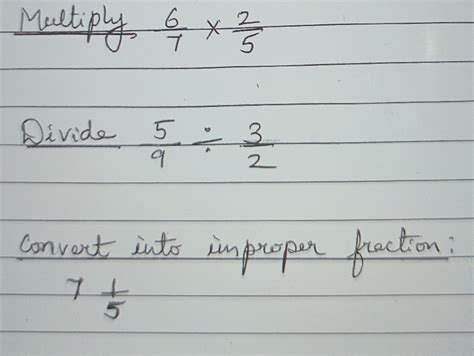 Multiply, 6/7 × 2/5
Divide 5/9 ÷ 3/2
Convert into improper fraction:
7 1/5